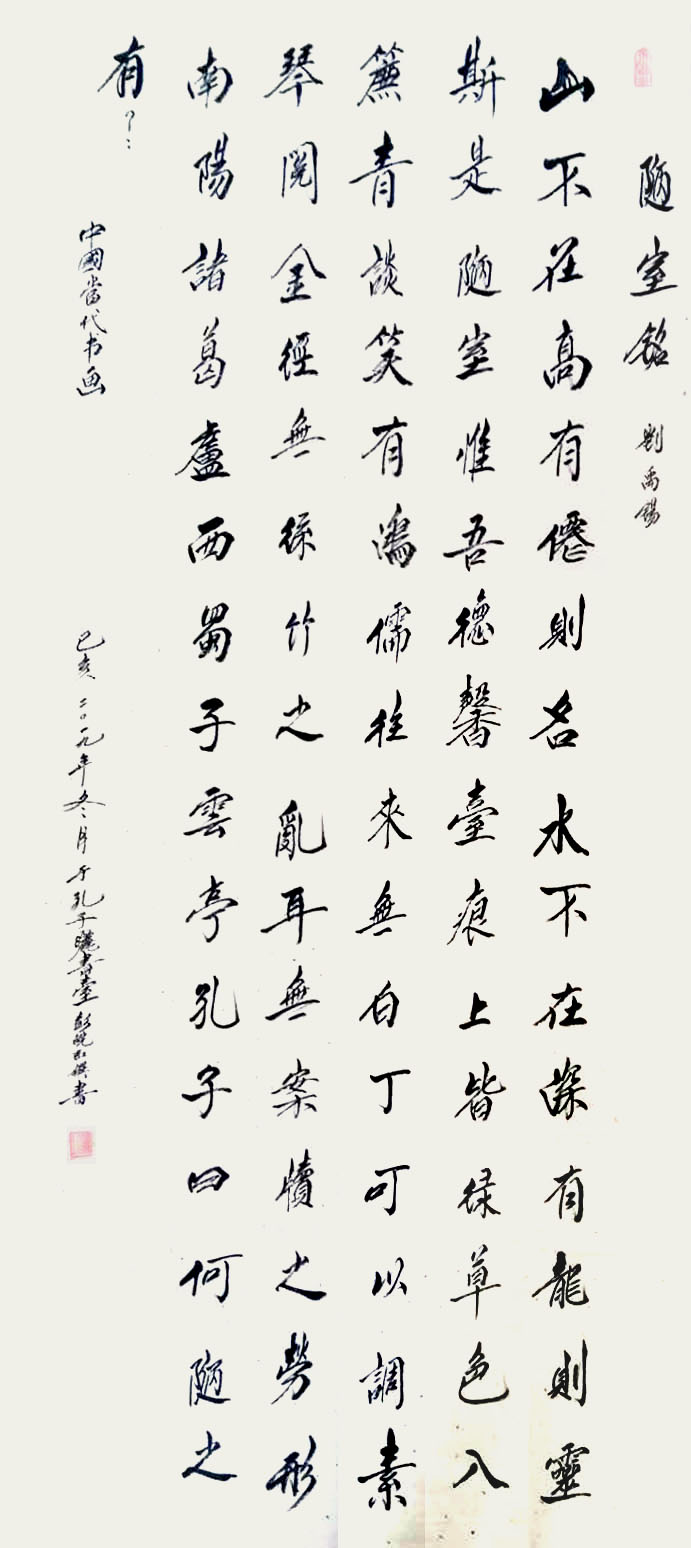 陋室銘 劉禹錫
山不在高有僊則名水不在深有龍則靈
斯是陋室惟吾德馨臺痕上皆绿草色入
簾青談笑有鴻儒往來無白丁可以調素
琴閱金徑無絲竹之亂耳無案牘之勞形
南陽諸葛盧西蜀子雲亭孔子曰何陋之
有?:
中國當代书画
己亥二〇一九年冬月于孔子曬書臺彭書